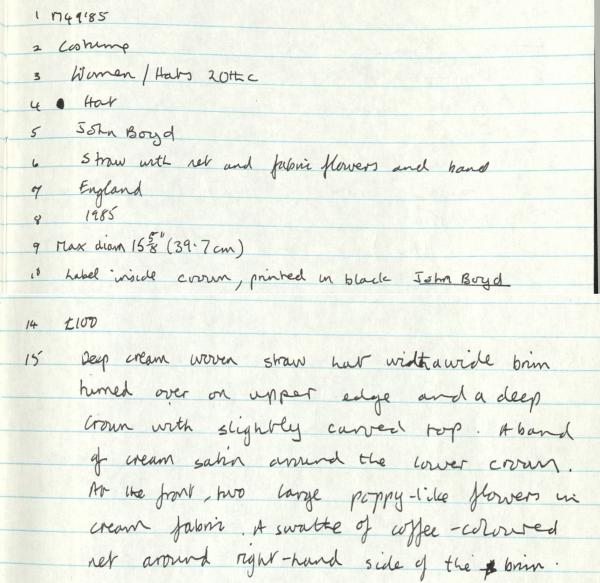 1 M49'85
2 Costume
3 Women / Hats 20th c
4 Hat
5 John Boyd
6 Straw with net and fabric flowers and band
7 England
8 1985
9 Max diam 15 5/8" (39.7cm)
10 Label inside crown, printed in black John Boyd
14 £100
15 Deep cream woven straw hat with a wide brim
turned over on upper edge and a deep
crown with slightly curved top. A band
of cream satin around the lower crown.
At the front, two large poppy-like flowers in
cream fabric. A swathe of coffee-coloured
net around right-hand side of the brim.